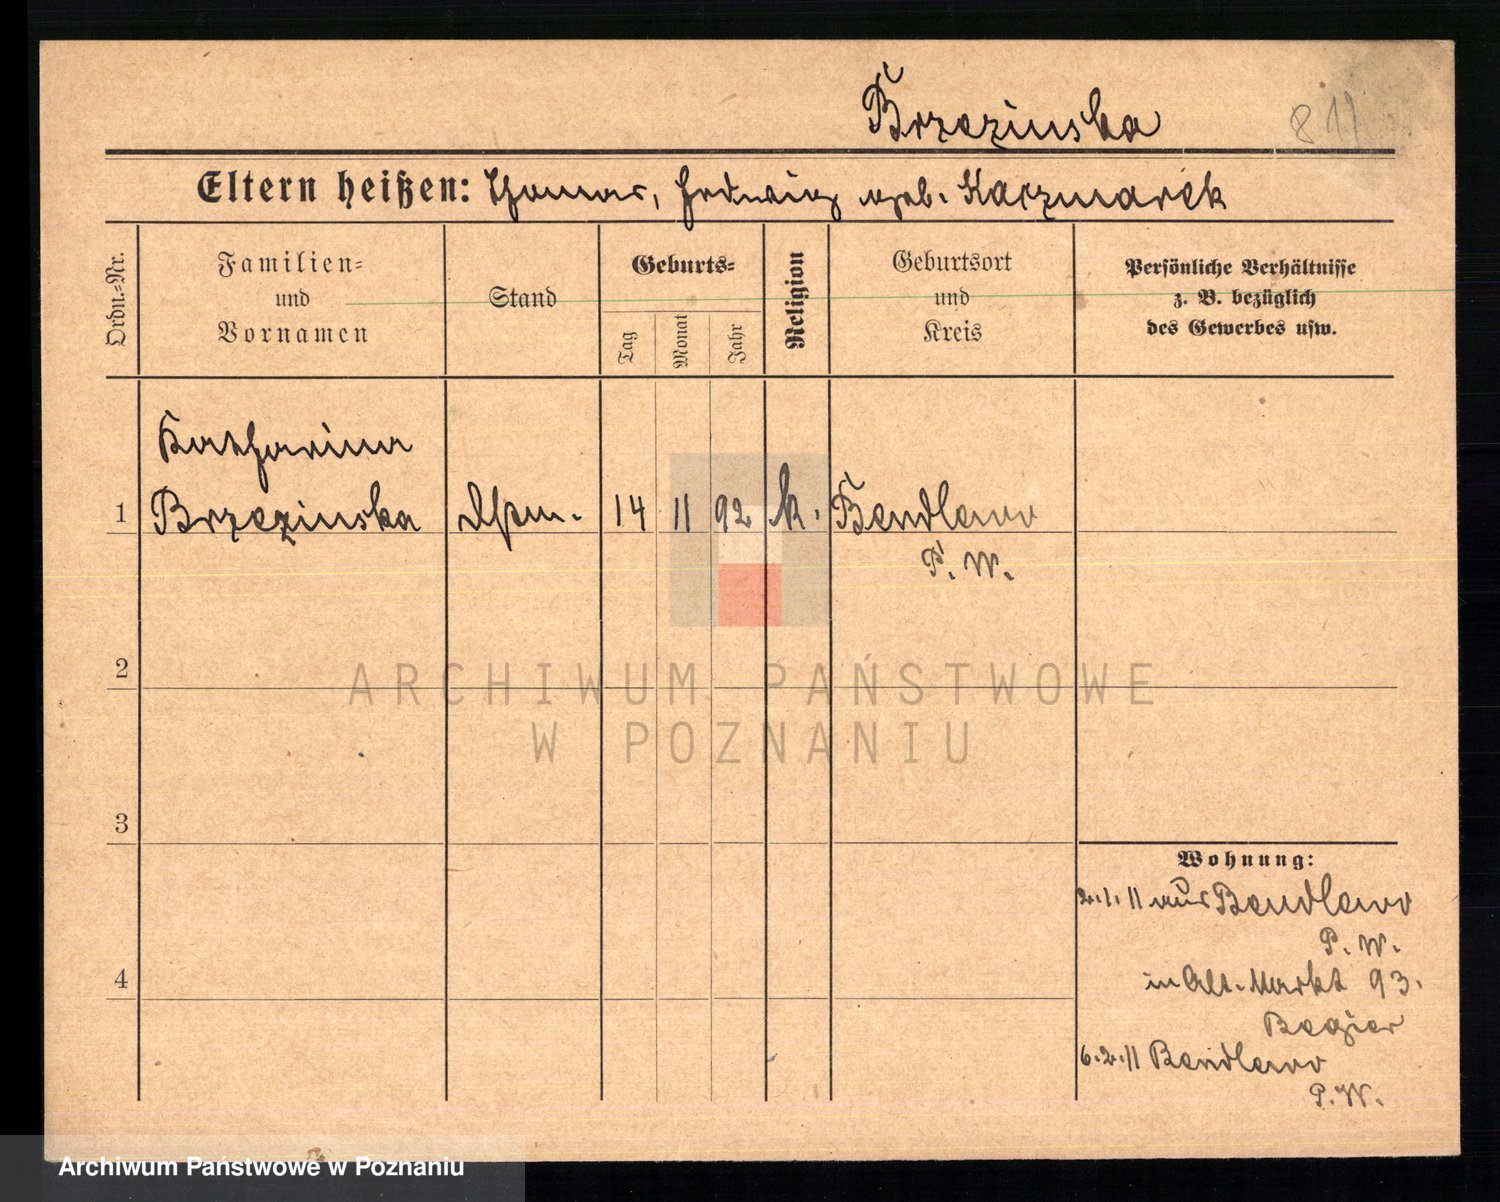 Brzezinska
811
Eltern heißen: Thomas, Hedwig geb. Kaczmarek
Ordn.-Nr.
Familien-
und
Vornamen
Stand
Geburts-
Tag
Monat
Jahr
Religion
Geburtsort
und
Kreis
Persönliche Verhältnisse
z. B. bezüglich
des Gewerbes usw.
Katharina
1 Brzezinska Dstm. 14 11 92 k. Bendlewo
P. W.
2
3
4
Wohnung:
2.1.11 aus Bendlewo
P. W.
in Alt. Markt 93.
6.2.11 Bendlewo
P. W.
ARCHIWUM PAŃSTWOWE
W POZNANIU
Archiwum Państwowe w Poznaniu